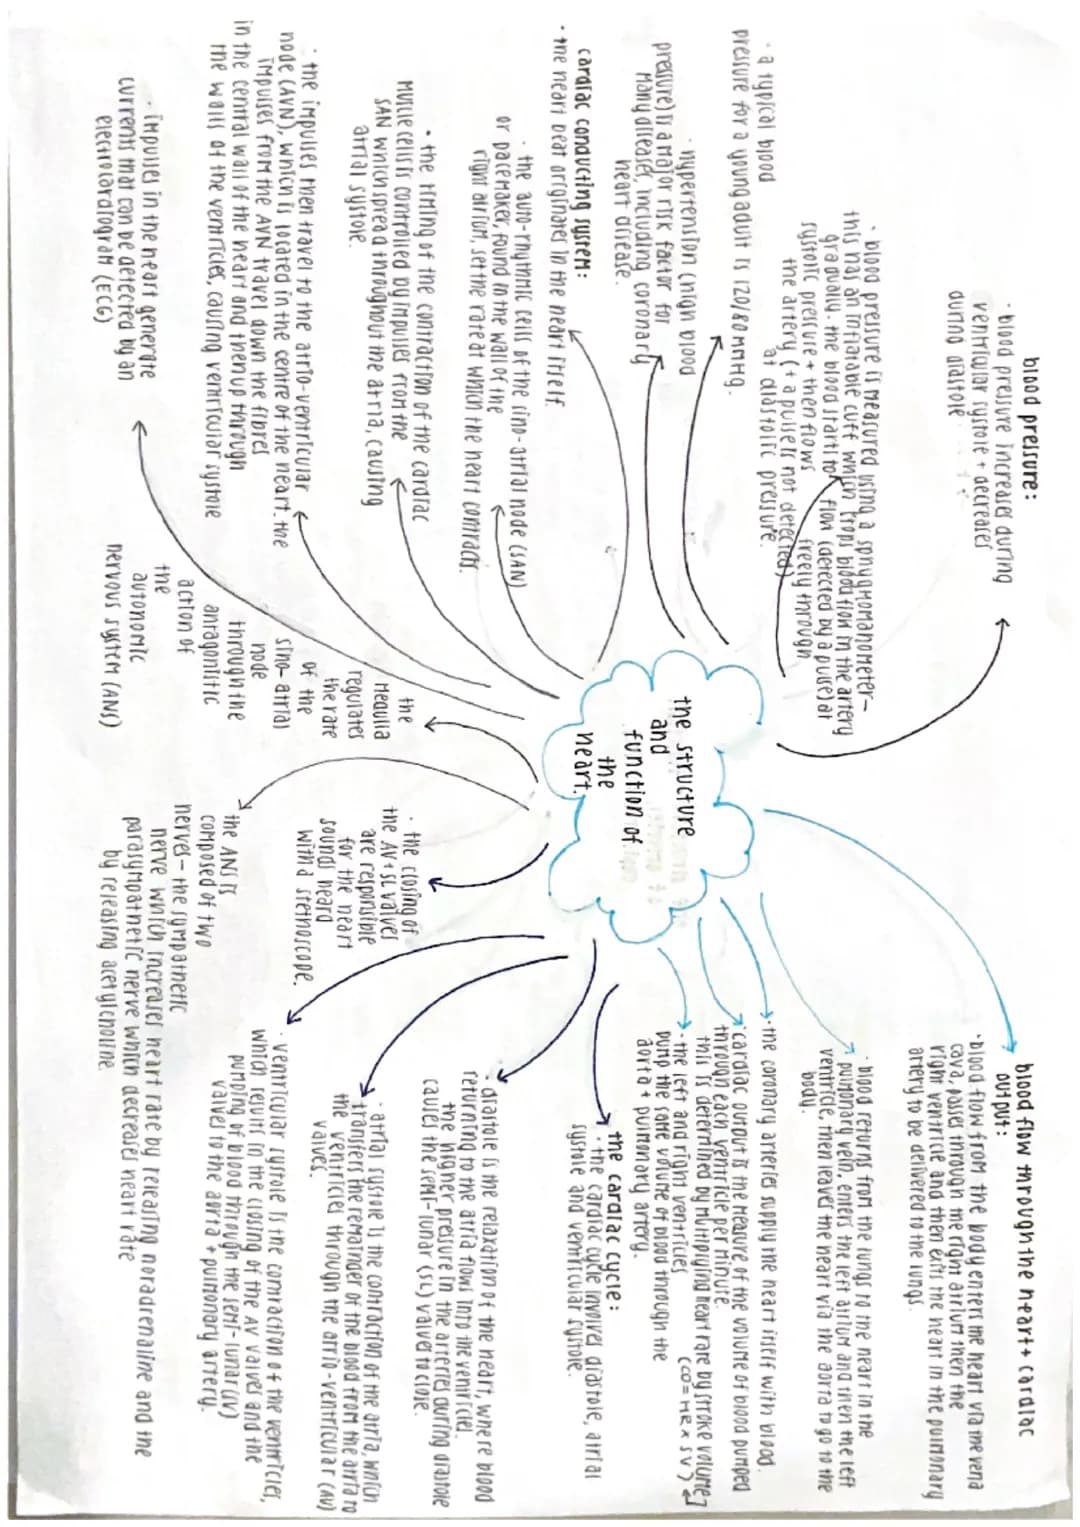 blood pressure:
· blood pressure increase during
ventricular systole + decreases
during diastole
· blood pressure is measured using a sphygmomanometer-
this has an inflatable cuff which stops blood flow in the artery
gradually. the blood starts to flow (detected by a pulse) at
systolic pressure + then flows freely through
the artery (+ a pulse is not detected)
at diastolic pressure.
· a typical blood
pressure for a young adult is 120/80mmHg.
· hypertension (high blood
pressure) is a major risk factor for
many diseases, including coronary
heart disease.
cardiac conducting system:
· the heart beat originates in the heart itself.
· the auto-rhythmic cells of the sino-atrial node (SAN)
or pacemaker, found in the wall of the
right atrium, set the rate at which the heart contracts.
· the timing of the contraction of the cardiac
muscle cells is controlled by impulses from the
SAN which spread throughout the atria, causing
atrial systole.
· the impulses then travel to the atrio-ventricular
node (AVN), which is located in the centre of the heart. the
impulses from the AVN travel down the fibres
in the central wall of the heart and then up through
the walls of the ventricles, causing ventricular systole
· impulses in the heart generate
currents that can be detected by an
electrocardiogram (ECG)
the structure
and
function of
the
heart.
the
medulla
regulates
the rate
of the
sino-atrial
node
through the
antagonistic
action of
the
autonomic
nervous system (ANS)
the ANS is
composed of two
nerves - the sympathetic
nerve which increases heart rate by releasing noradrenaline and the
parasympathetic nerve which decreases heart rate
by releasing acetylcholine.
· the closing of
the AV + SL valves
are responsible
for the heart
sounds heard
with a stethoscope.
blood flow through the heart + cardiac
output:
· blood flow from the body enters the heart via the vena
cava, passes through the right atrium then the
right ventricle and then exits the heart in the pulmonary
artery to be delivered to the lungs.
· blood returns from the lungs to the heart in the
pulmonary vein, enters the left atrium and then the left
ventricle, then leaves the heart via the aorta to go to the
body.
· the coronary arteries supply the heart itself with blood.
· cardiac output is the measure of the volume of blood pumped
through each ventricle per minute.
this is determined by multiplying heart rate by stroke volume
(CO = HR × SV)
· the left and right ventricles
pump the same volume of blood through the
aorta + pulmonary artery.
the cardiac cycle:
· the cardiac cycle involves diastole, atrial
systole and ventricular systole.
· diastole is the relaxation of the heart, where blood
returning to the atria flows into the ventricles.
the higher pressure in the arteries during diastole
causes the semi-lunar (SL) valves to close.
· atrial systole is the contraction of the atria, which
transfers the remainder of the blood from the atria to
the ventricles through the atrio-ventricular (AV)
valves.
· ventricular systole is the contraction of the ventricles,
which result in the closing of the AV valves and the
pumping of blood through the semi-lunar
valves to the aorta + pulmonary artery.